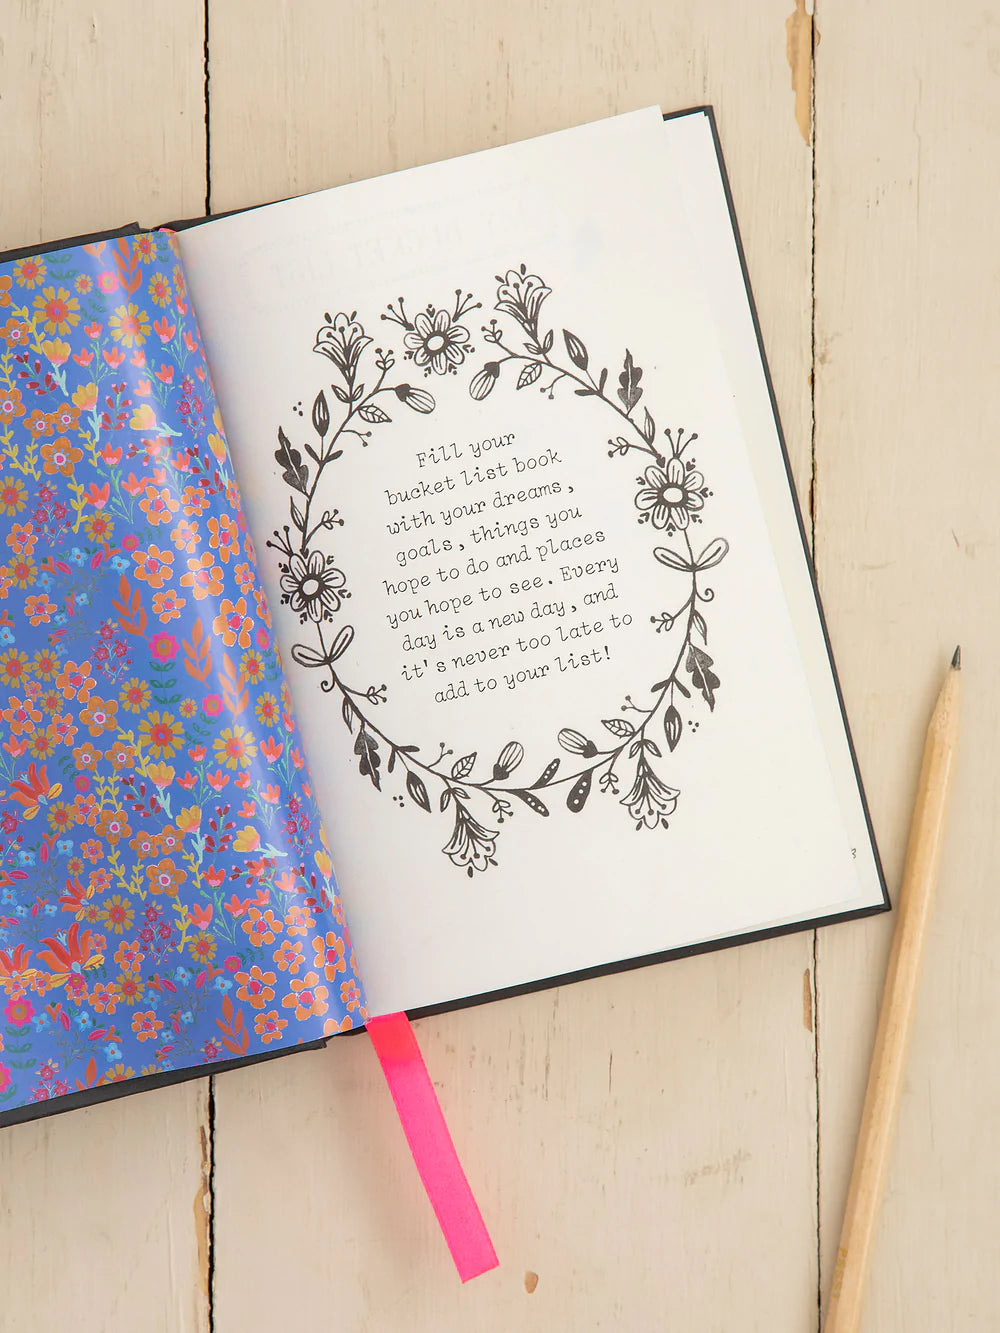 Fill your
bucket list book
with your dreams,
goals, things you
hope to do and places
you hope to see. Every
day is a new day, and
it's never too late to
add to your list!
3